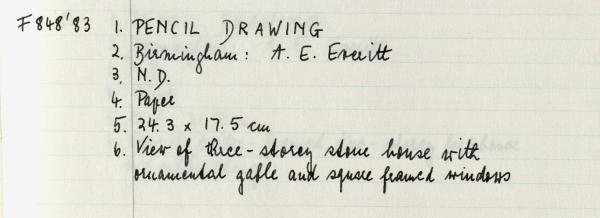 F848'83 1. PENCIL DRAWING
2. Birmingham: A. E. Everitt
3. N.D.
4. Paper
5. 24.3 x 17.5 cm
6. View of three-storey stone house with
ornamental gable and square framed windows